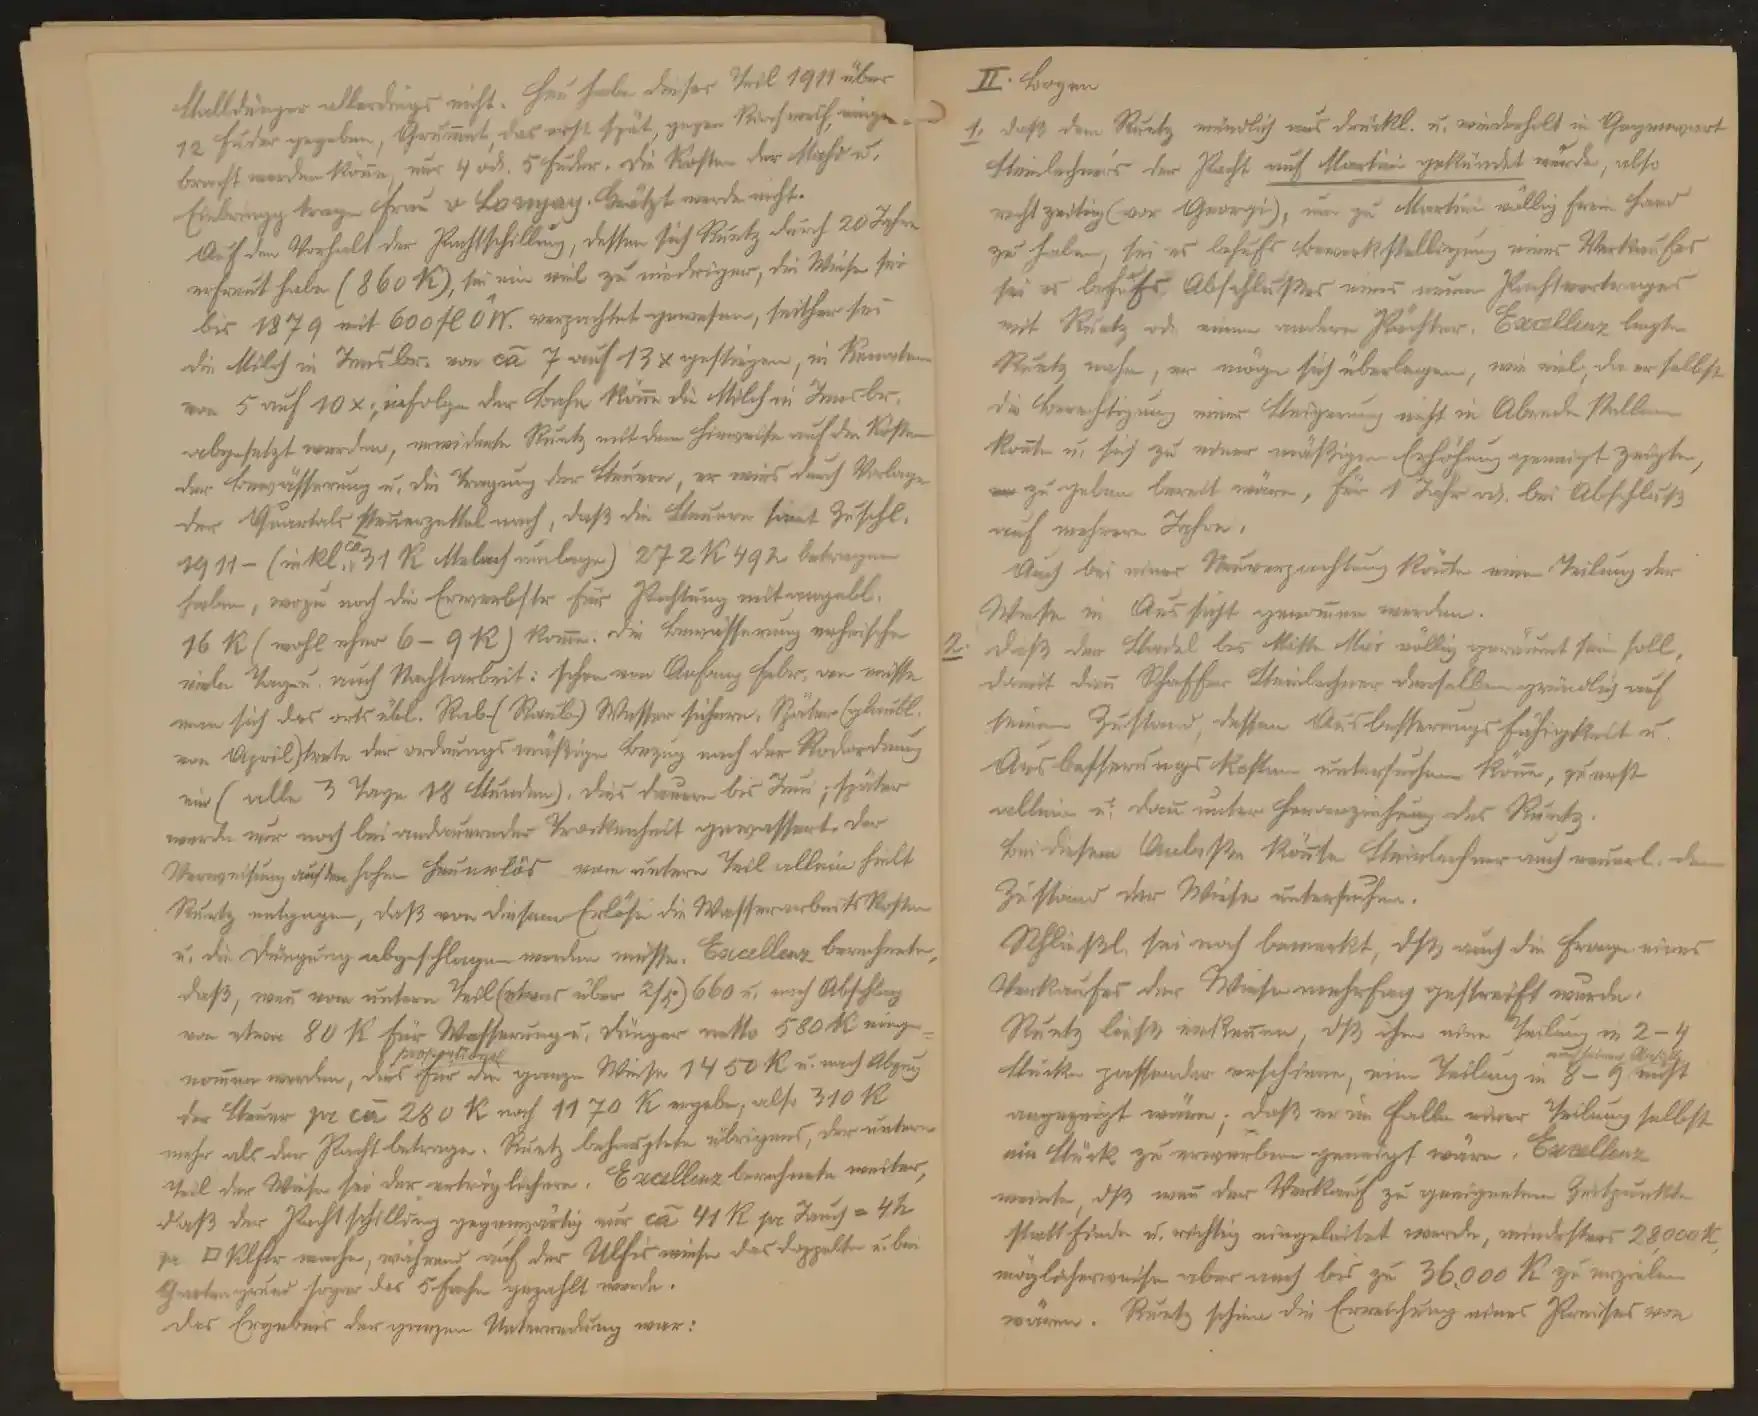 Stalldünger allerdings nicht. Heu habe dieser Teil 1911 über
12 Fuder gegeben, Grum̄et, das erst spät, gegen Kirchweih, einge-
bracht werden kön̄e, nur 4 od. 5 Fuder. Die Kosten der Mahd u.
Einbringg trage Frau v Lonyay. Geätzt werde nicht.
Auf den Vorhalt der Pachtschilling, dessen sich Ruetz durch 20 Jahre
erfreut habe (860 K), sei ein viel zu niedriger, die Wiese sei
bis 1879 mit 600 fl ÖW. verpachtet gewesen, seither sei
die Milch in Innsbr. von cā 7 auf 13 x gestiegen, in Kematen
von 5 auf 10 x; infolge der Bahn kön̄e die Milch in Innsbr.
abgesetzt werden, erwiderte Ruetz mit dem Hinweise auf die Kosten
der Bewässerung u. die Tragung der Steuern, er wies durch Vorlage
der Quartals Steuerzettel nach, daß die Steuern samt Zuschl.
1911 – (inkl. ca 31 K Melach umlage) 272 K 49 h betragen
haben, wozu noch die Erwerbstr für Pachtung mit angebl.
16 K (wohl eher 6 – 9 K) kom̄e. Die Bewässerung erheische
viele Tag u. auch Nachtarbeit: schon von Anfang Febr. an müsse
man sich das ortsübl. Rab-(Raub-) Wasser sichern. Später (glaubl.
von April) trete der ordnungsmäßige Bezug nach der Rodordnung
ein (alle 3 Tage 18 Stunden). Dies dauere bis Juni; später
werde nur noch bei andauernder Trockenheit gewässert. Der
Verweisung auf den hohen Heuerlös vom untern Teil allein hielt
Ruetz entgegen, daß von diesem Erlöse die Wasserarbeits Kosten
u. die Düngung abgeschlagen werden müsse. Excellenz berechnete,
daß, wen̄ vom untern Teil (etwas über 2/5) 660 u. nach Abschlag
von etwa 80 K für Wässerung u. Dünger netto 580 K einge-
nom̄en werden, dies proportional für die ganze Wiese 1450 K u. nach Abzug
der Steuer pr cā 280 K noch 1170 K ergebe, also 310 K
mehr als der Pacht betrage. Ruetz behauptete übrigens, der untere
Teil der Wiese sei der erträglichere. Excellenz berechnete weiter,
daß der Pachtschilling gegenwärtig nur cā 41 K pr Jauch = 4 h
pr □ Klftr mache, während auf der Ulfiswiese das doppelte u. bei
Gartengrund sogar das 5 fache gezahlt werde.
Das Ergebnis der ganzen Unterredung war:
II. Bogen
1. daß dem Ruetz mündlich aus drückl. u. wiederholt in Gegenwart
Steinlechner's der Pacht auf Martini gekündet wurde, also
rechtzeitig (vor Georgi), um zu Martini völlig freie Hand
zu haben, sei es behufs Bewerkstelligung eines Verkaufes
sei es behufs Abschlußes eines neuen Pachtvertrages
mit Ruetz od. einem andern Pächter. Excellenz legte
Ruetz nahe, er möge sich überlegen, wie viel, da er selbst
die Berechtigung einer Steigerung nicht in Abrede stellen
kon̄te u. sich zu einer mäßigen Erhöhung geneigt zeigte,
zu geben bereit wäre, für 1 Jahr od. bei Abschluß
auf mehrere Jahre.
Auch bei einer Neuverpachtung kön̄te eine Teilung der
Wiese in Aussicht genom̄en werden.
2. daß der Stadel bis Mitte Mai völlig geräumt sein soll,
damit dan̄ Schaffer Steinlechner denselben gründlich auf
seinen Zustand, dessen Ausbesserungsfähigkeit u.
Ausbesserungs Kosten untersuchen kön̄e, zuerst
allein u. dan̄ unter Heranziehung des Ruetz.
Bei diesem Anlaße kön̄te Steinlechner auch neuerl. den
Zustand der Wiese untersuchen.
Schließl. sei noch bemerkt, dß auch die Frage eines
Verkaufes der Wiese mehrfach gestreift wurde.
Ruetz ließ erken̄en, dß ihm eine Teilung in 2 – 4
Stücke passender erscheine, eine Teilung in 8 – 9 nach seiner Ansicht nicht
angezeigt wäre; daß er im Falle einer Teilung selbst
ein Stück zu erwerben geneigt wäre. Excellenz
meinte, dß wen̄ der Verkauf zu geeignetem Zeitpunkte
stattfinde u. richtig eingeleitet werde, mindestens 28,000 K,
möglicherweise aber auch bis zu 36,000 K zu erzielen
wären. Ruetz schien die Erreichung eines Preises von